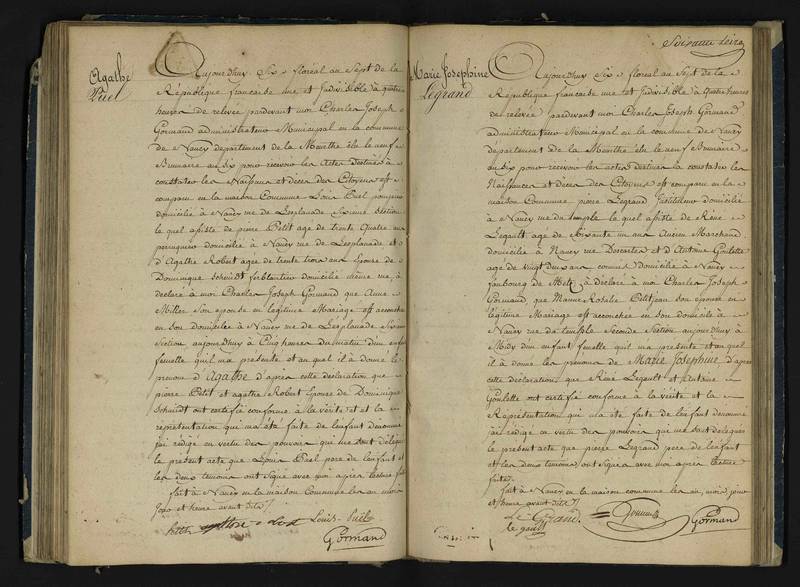 Agathe
Puel
Aujourdhuy Six floréal au Sept de la
République francaise une et Indivisible à quatre
heures de relevée pardevant moi Charles Joseph
Gormand administrateur Municipal en la commune
de Nancy departement de la Meurthe élu le neuf
Brumaire au six pour recevoir les Actes Destinés à
constater les Naissances et décès des Citoyens est
comparu en la maison Commune Louis Puel
domicilié à Nancy rue de Lesplanade Sixieme Section
lequel assisté de pierre Petit age de trente Quatre ans
perruquier domicilié à Nancy rue de Lesplanade et
d'Agathe Robert agée de trente trois ans Epouse de
Dominique Schmidt ferblantier domicilié même rue à
declaré à moi Charles Joseph Gormand que Anne
Miller Son epouse en légitime Mariage est accouchée
en son domicile à Nancy rue de Lesplanade
Section aujourdhuy à Cinq heures du matin d'un enfant
femelle quil ma présenté et au quel il à donné le
prénom d'Agathe d'après cette déclaration que
pierre Petit et agathe Robert Epouse de Dominique
Schmidt ont certifié conforme à la vérité et la
représentation qui m'a été faite de lenfant dénommé
jai rédigé en vertu des pouvoirs qui me sont délégués
le présent acte que Louis Puel pere de lenfant et
les deux temoins ont Signé avec moi après lecture faite
fait à Nancy en la maison Commune les an mois
jour et heure avant dits
petit Louis Puel
Gormand
Marie Josephine
Legrand
Aujourdhuy Six floréal au Sept de la
République francaise une et Indivisible à Quatre heures
de relevée pardevant moi Charles Joseph Gormand
administrateur Municipal en la commune de Nancy
departement de la Meurthe élu le neuf Brumaire
au six pour recevoir les actes destinés à constater les
Naissances et Décès des Citoyens est comparu en la
maison Commune pierre Legrand Instituteur domicilié
à Nancy rue du temple le quel assisté de René
Legault age de Soixante un ans Ancien Marchand
domicilié à Nancy rue Descartes et d'Antoine Goulette
age de vingt deux ans commis domicilié à Nancy
faubourg de Metz à déclaré à moi Charles Joseph
Gormand, que Marie Rosalie Petitjean son épouse en
légitime Mariage est accouchée en son domicile à
Nancy rue du temple Seconde Section aujourdhuy à
Midy d'un enfant femelle quil ma présenté et au quel
il à donné les prénoms de Marie Josephine d'après
cette déclaration que René Legault et Antoine
Goulette ont certifié conforme à la vérité et la
Représentation qui m'a été faite de lenfant dénommé
jai rédigé en vertu des pouvoirs qui me sont délégués
le present acte que pierre Legrand pere de lenfant
et les deux temoins ont Signé avec moi après lecture
faite.
fait à Nancy en la maison commune les an, mois, jour
et heure avant dits
Legrand
le gault
Gormand